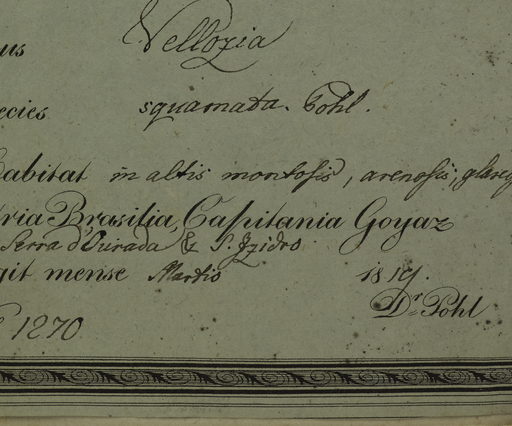 us Vellozia
ecies squamata. Pohl.
abitat in altis montosis, arenosis, glare
tria Brasilia, Capitania Goyaz
Serra d'Ourada & S. Izidro
git mense Martio 1819.
Dr. Pohl
1270